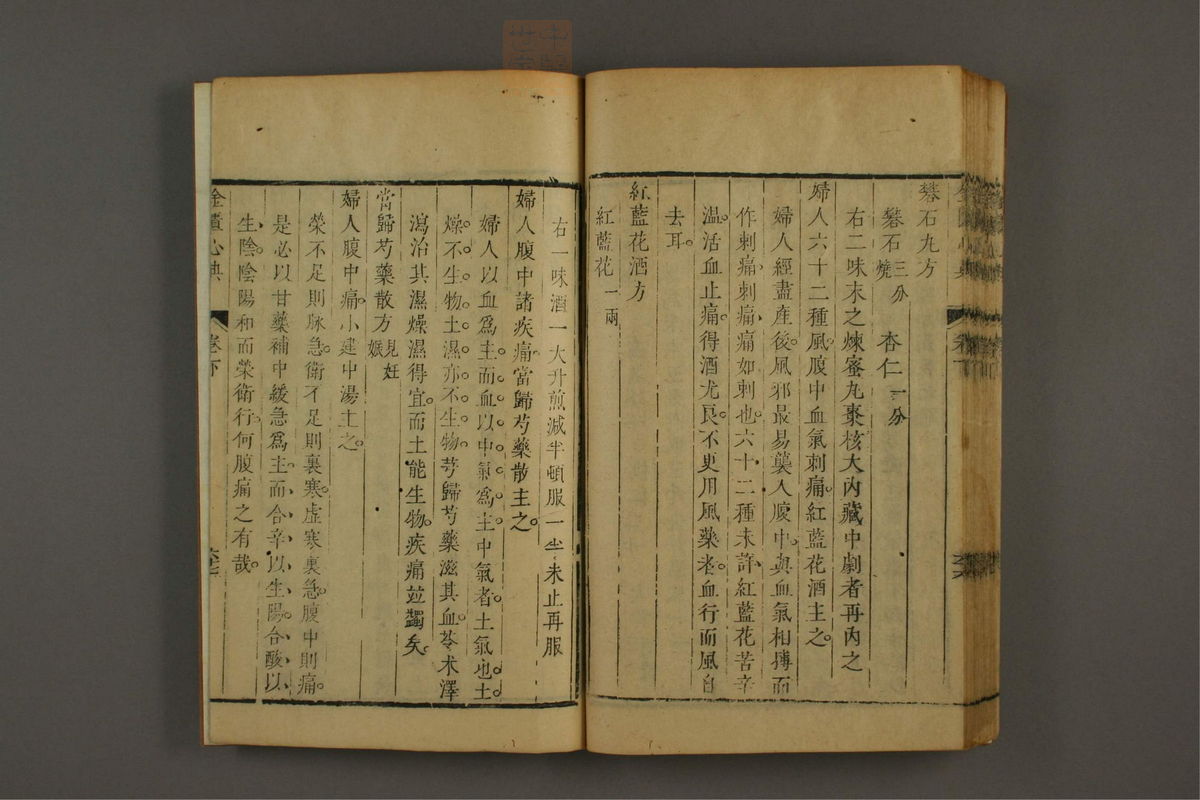 礬石丸方
礬石三分燒 杏仁一分
右二味末之煉蜜丸棗核大內藏中劇者再內之
婦人六十二種風腹中血氣刺痛紅藍花酒主之
婦人經盡產後風邪最易襲入腹中與血氣相搏而
作刺痛刺痛痛如刺也六十二種未詳紅藍花苦辛
溫活血止痛得酒尤良不更用風藥者血行而風自
去耳
紅藍花酒方
紅藍花一兩
右一味酒一大升煎減半頓服一半未止再服
婦人腹中諸疾痛當歸芍藥散主之
婦人以血為主而血以中氣為主中氣者土氣也土
燥不生物土濕亦不生物芎歸芍藥滋其血苓朮澤
瀉治其濕燥濕得宜而土能生物疾痛並蠲矣
當歸芍藥散方見妊娠
婦人腹中痛小建中湯主之
榮不足則脉急衛不足則裏寒虛寒裏急腹中則痛
是必以甘藥補中緩急為主而合辛以生陽合酸以
生陰陰陽和而榮衛行何腹痛之有哉
金匱心典 卷下